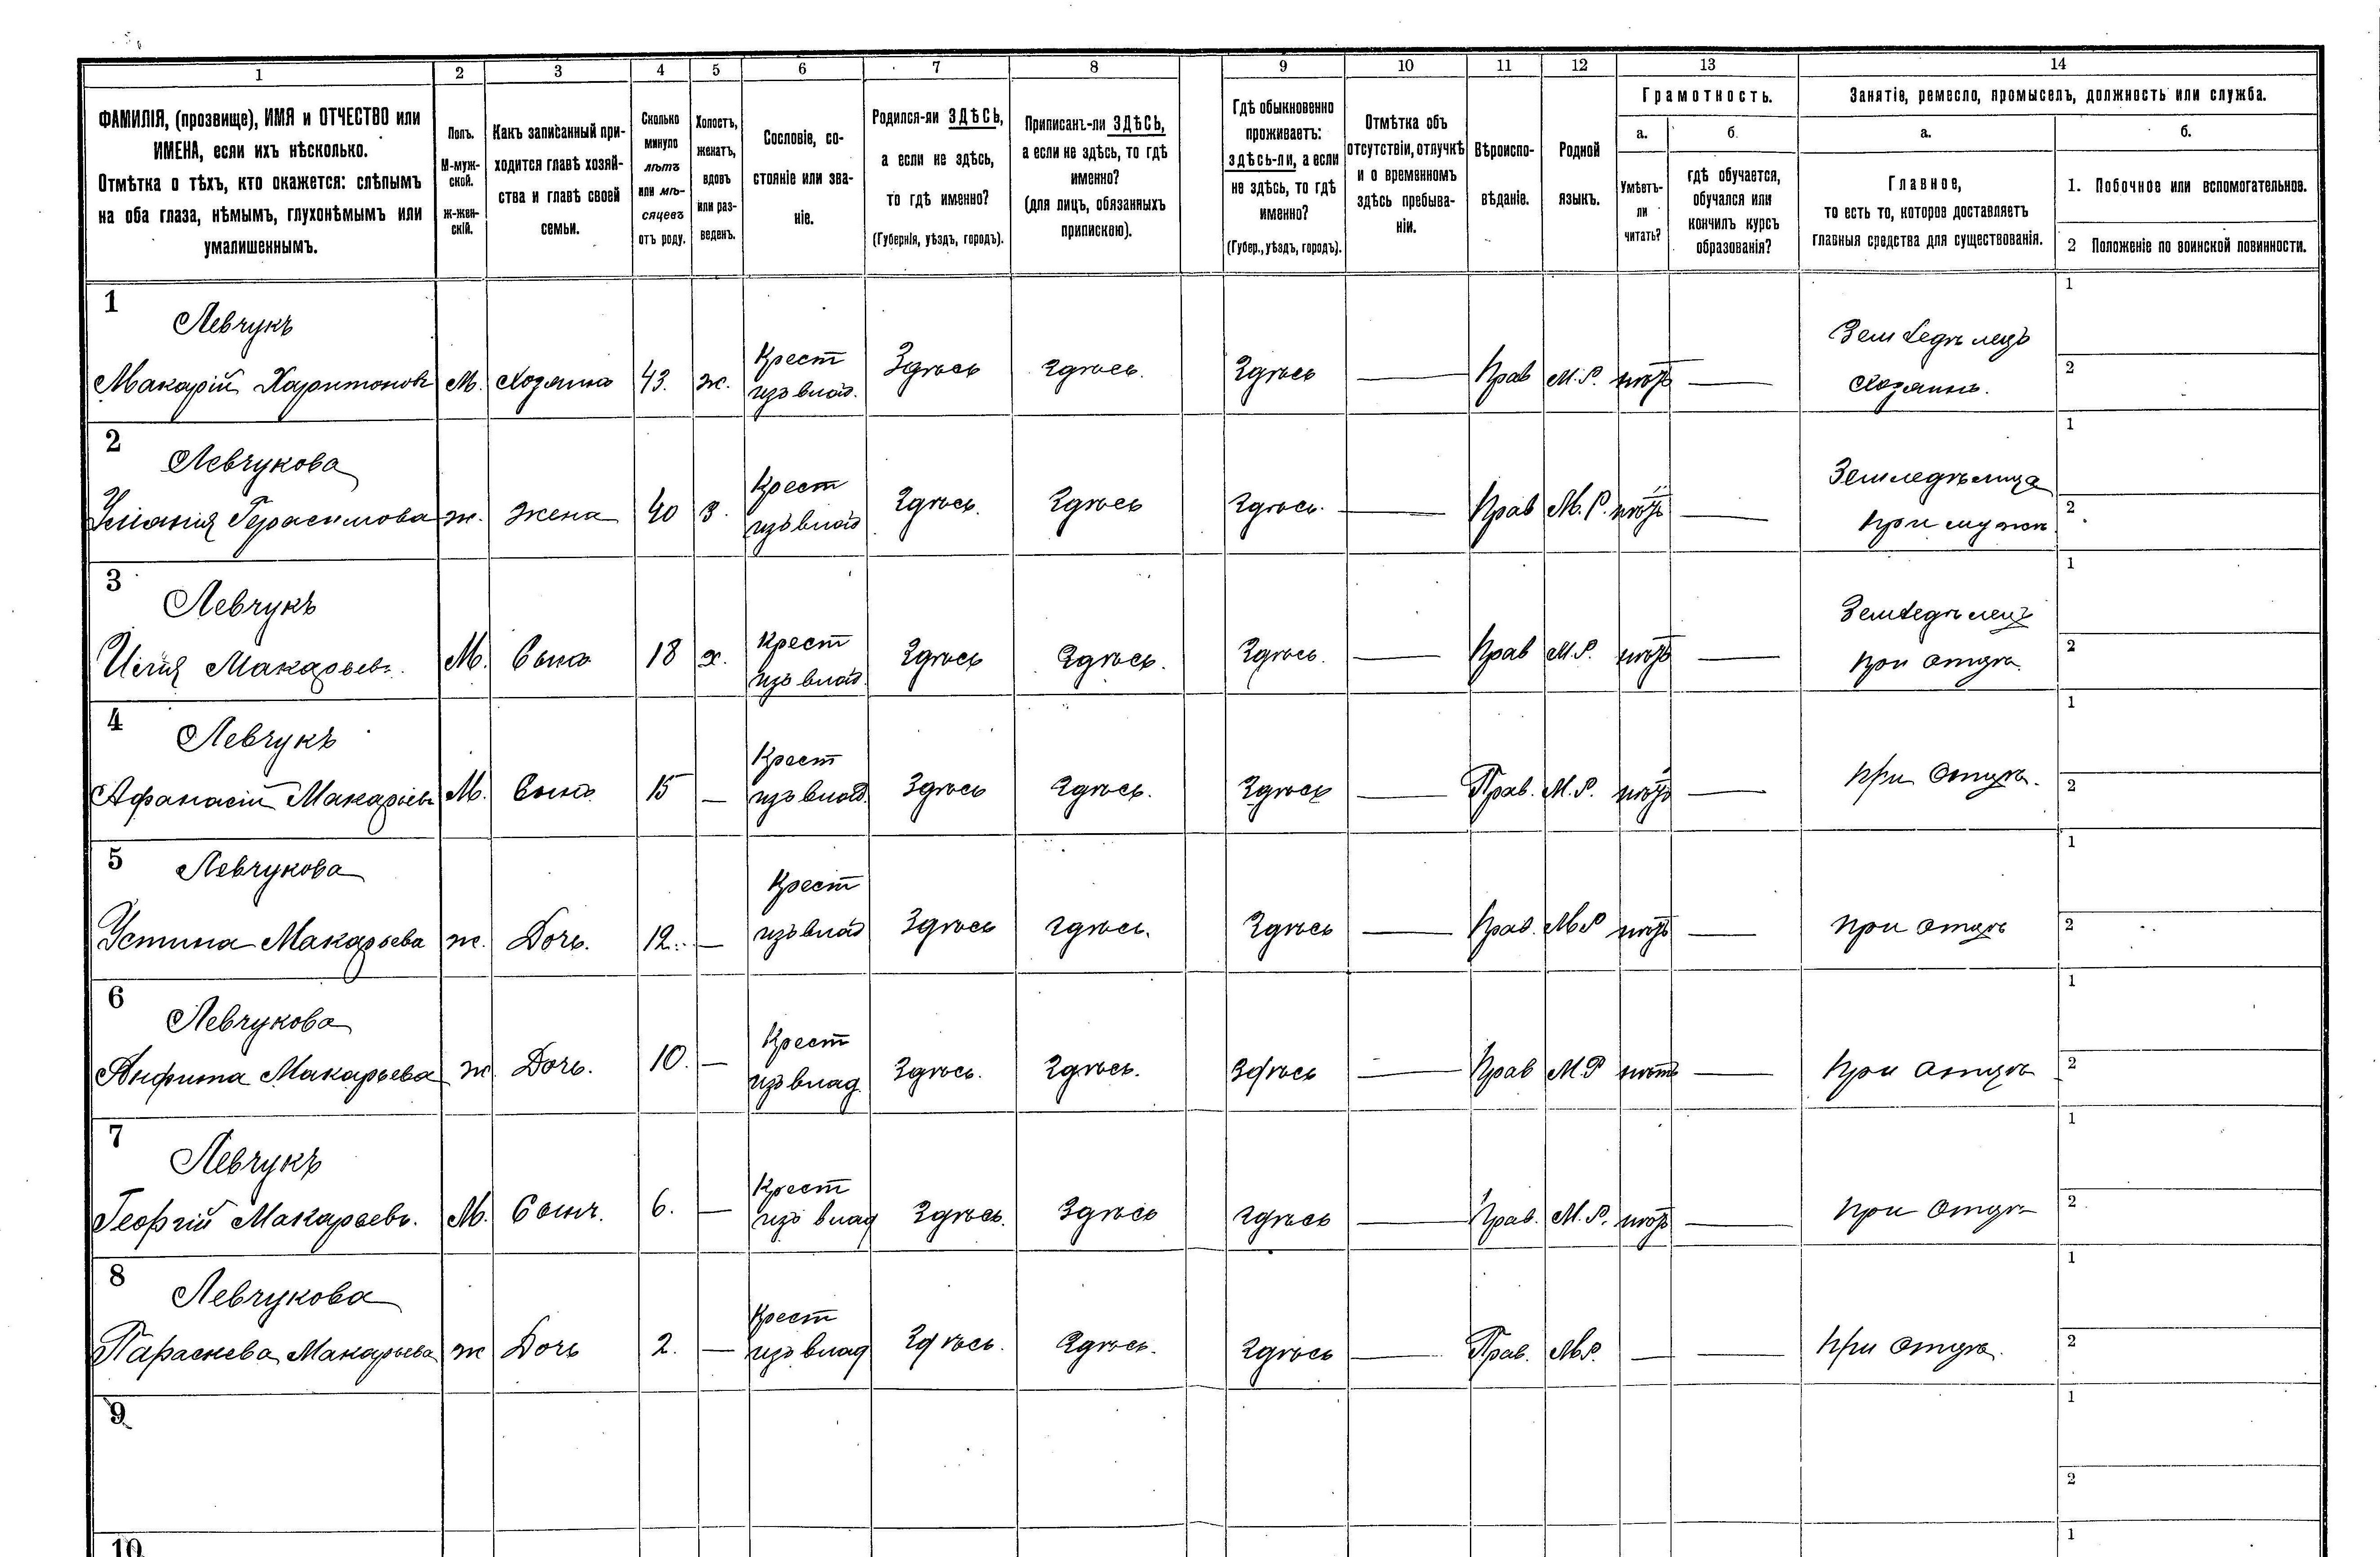 1 2 3 4 5 6 7 8 9 10 11 12 13 14
ФАМИЛІЯ, (прозвище), ИМЯ и ОТЧЕСТВО или
ИМЕНА, если ихъ нѣсколько.
Отмѣтка о тѣхъ, кто окажется: слѣпымъ
на оба глаза, нѣмымъ, глухонѣмымъ или
умалишеннымъ.
Полъ.
М-муж-
ской.
ж-жен-
скій.
Какъ записанный при-
ходится главѣ хозяй-
ства и главѣ своей
семьи.
Сколько
минуло
лѣтъ
или мѣ-
сяцевъ
отъ роду.
Холостъ,
женатъ,
вдовъ
или раз-
веденъ.
Сословіе, со-
стояніе или зва-
ніе.
Родился-ли ЗДѢСЬ,
а если не здѣсь,
то гдѣ именно?
(Губернія, уѣздъ, городъ).
Приписанъ-ли ЗДѢСЬ,
а если не здѣсь, то гдѣ
именно?
(для лицъ, обязанныхъ
припискою).
Гдѣ обыкновенно
проживаетъ:
здѣсь-ли, а если
не здѣсь, то гдѣ
именно?
(Губер., уѣздъ, городъ).
Отмѣтка объ
отсутствіи, отлучкѣ
и о временномъ
здѣсь пребыва-
ніи.
Вѣроиспо-
вѣданіе.
Родной
языкъ.
Грамотность.
а.
Умѣетъ-
ли
читать?
б.
гдѣ обучается,
обучался или
кончилъ курсъ
образованія?
Занятіе, ремесло, промыселъ, должность или служба.
а.
Главное,
то есть то, которое доставляетъ
главныя средства для существованія.
б.
1. Побочное или вспомогательное.
2 Положеніе по воинской повинности.
1
Левчукъ
Макарій Харитоновъ М. Хозяинъ 43. ж. Крест изъ влад. Здѣсь Здѣсь. Здѣсь — Прав М.Р. нѣтъ — Земледѣлецъ
Хозяинъ.
1
2
2
Левчукова
Герасимова ж. жена 40 З. Крест изъ влад Здѣсь. Здѣсь Здѣсь. — Прав М.Р. нѣтъ — Земледѣлица
При мужѣ
1
2
3
Левчукъ
Илія Макарьевъ. М. Сынъ 18 х. Крест изъ влад. Здѣсь Здѣсь. Здѣсь. — Прав М.Р. нѣтъ — Земледѣлецъ
при отцѣ
1
2
4
Левчукъ
Афанасій Макарьевъ М. Сынъ 15 — Крест изъ влад. Здѣсь Здѣсь. Здѣсь — Прав. М.Р. нѣтъ — при отцѣ.
1
2
5
Левчукова
Устина Макарьева ж. Дочь. 12. — Крест изъ влад Здѣсь здѣсь. Здѣсь — Прав. М.Р нѣтъ — при отцѣ
1
2
6
Левчукова
Анфима Макарьева ж Дочь. 10. — Крест изъ влад. Здѣсь. Здѣсь. Здѣсь — Прав М.Р нѣтъ — При отцѣ
1
2
7
Левчукъ
Георгій Макарьевъ. М. Сынъ. 6. — Крест изъ влад Здѣсь. Здѣсь здѣсь — Прав. М.Р. нѣтъ — при отцѣ
1
2
8
Левчукова
Параскева Макарьева ж Дочь 2. — Крест изъ влад Здѣсь. Здѣсь. Здѣсь — Прав. М.Р. — — при отцѣ.
1
2
9
1
2
10
1